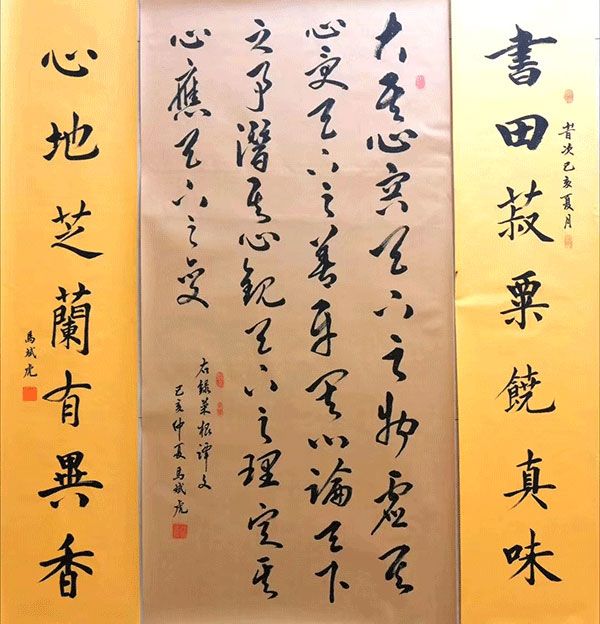 書田菽粟饒真味
旹次己亥夏月
大其心容天下之物虛其
心受天下之善平其心論天下
之事潛其心觀天下之理定其
心應天下之變
右録菜根譚文
己亥仲夏馬斌虎
心地芝蘭有異香
馬斌虎